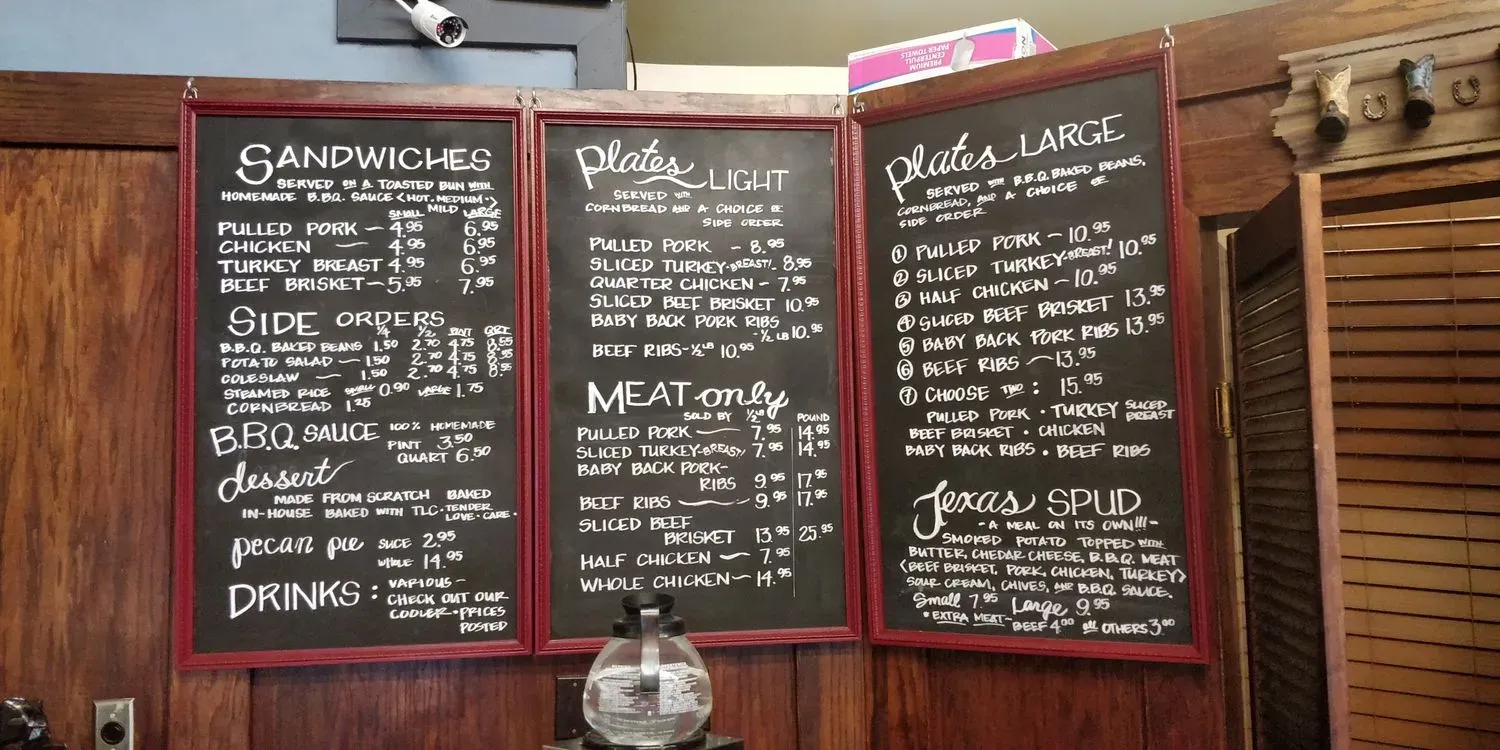 PREMIUM
CENTERPULL
PAPER TOWELS
SANDWICHES
SERVED ON A TOASTED BUN WITH
HOMEMADE B.B.Q. SAUCE <HOT. MEDIUM.>
MILD
SMALL LARGE
PULLED PORK - 4.95 6.95
CHICKEN - 4.95 6.95
TURKEY BREAST 4.95 6.95
BEEF BRISKET - 5.95 7.95
SIDE ORDERS
1/4 1/2 PINT QRT
B.B.Q. BAKED BEANS 1.50 2.70 4.75 8.55
POTATO SALAD - 1.50 2.70 4.75 8.55
COLESLAW - 1.50 2.70 4.75 8.55
STEAMED RICE SMALL 0.90 LARGE 1.75
CORNBREAD 1.25
B.B.Q. SAUCE 100% HOMEMADE
PINT 3.50
QUART 6.50
dessert
MADE FROM SCRATCH BAKED
IN-HOUSE BAKED WITH TLC. TENDER
LOVE. CARE.
pecan pie SLICE 2.95
WHOLE 14.95
DRINKS : VARIOUS -
CHECK OUT OUR
COOLER. PRICES
POSTED
Plates LIGHT
SERVED WITH
CORNBREAD AND A CHOICE OF
SIDE ORDER
PULLED PORK - 8.95
SLICED TURKEY-BREAST!- 8.95
QUARTER CHICKEN - 7.95
SLICED BEEF BRISKET 10.95
BABY BACK PORK RIBS
-1/2 LB 10.95
BEEF RIBS-1/2 LB 10.95
MEAT only
SOLD BY 1/2 LB POUND
PULLED PORK - 7.95 14.95
SLICED TURKEY-BREAST! 7.95 14.95
BABY BACK PORK-
RIBS 9.95 17.95
BEEF RIBS - 9.95 17.95
SLICED BEEF
BRISKET 13.95 25.95
HALF CHICKEN - 7.95
WHOLE CHICKEN - 14.95
Plates LARGE
SERVED WITH B.B.Q. BAKED BEANS,
CORNBREAD, AND A CHOICE OF
SIDE ORDER
① PULLED PORK - 10.95
② SLICED TURKEY-BREAST! 10.95
③ HALF CHICKEN - 10.95
④ SLICED BEEF BRISKET 13.95
⑤ BABY BACK PORK RIBS 13.95
⑥ BEEF RIBS - 13.95
⑦ CHOOSE TWO : 15.95
PULLED PORK • TURKEY SLICED BREAST
BEEF BRISKET • CHICKEN
BABY BACK RIBS • BEEF RIBS
Texas SPUD
- A MEAL ON ITS OWN!!! -
SMOKED POTATO TOPPED WITH
BUTTER, CHEDAR CHEESE, B.B.Q. MEAT
<BEEF BRISKET, PORK, CHICKEN, TURKEY>
SOUR CREAM, CHIVES, AND B.B.Q. SAUCE.
Small 7.95 Large 9.95
• EXTRA MEAT - BEEF 4.00 all OTHERS 3.00